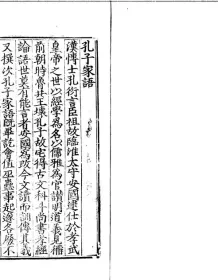 孔子家語
漢博士孔衍言臣祖故臨淮太守安國逮仕於孝武
皇帝之世以經學為名以儒雅為官讚明道義見稱
前朝時魯共王壞孔子故宅得古文科斗尚書孝經
論語世莫有能言者安國為改今文讀而訓傳其義
又撰次孔子家語既畢訖會值巫蠱事起遂各廢不